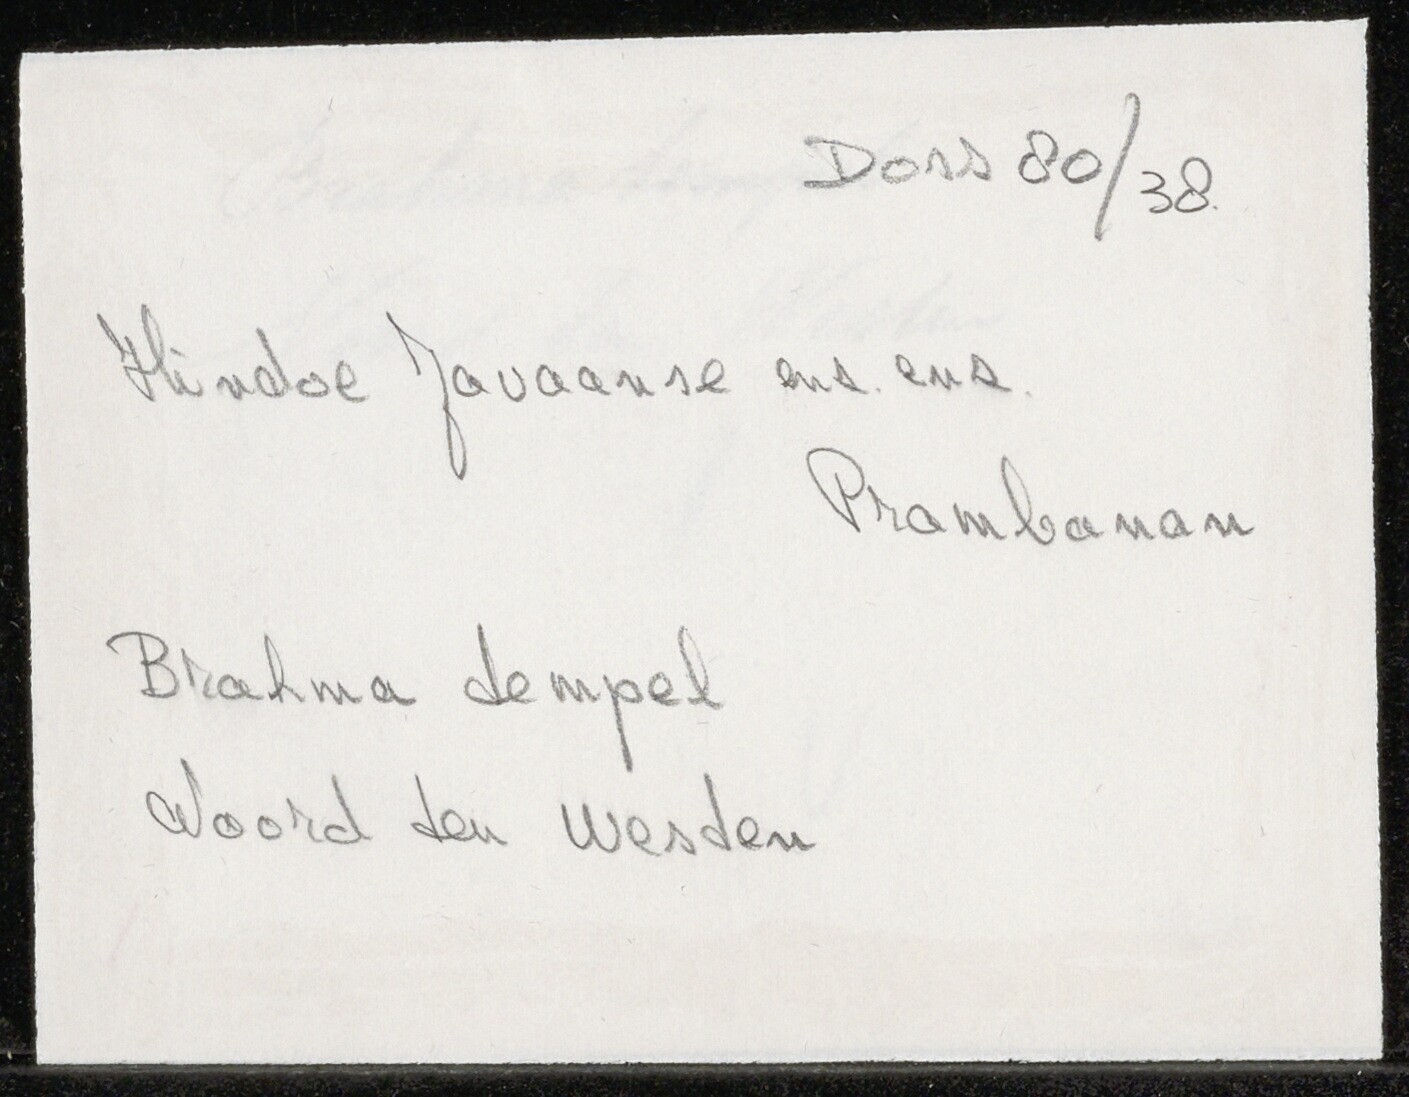 Doss 80/38.
Hindoe Javaanse ens. ens.
Prambanan
Brahma tempel
Noord ten Westen